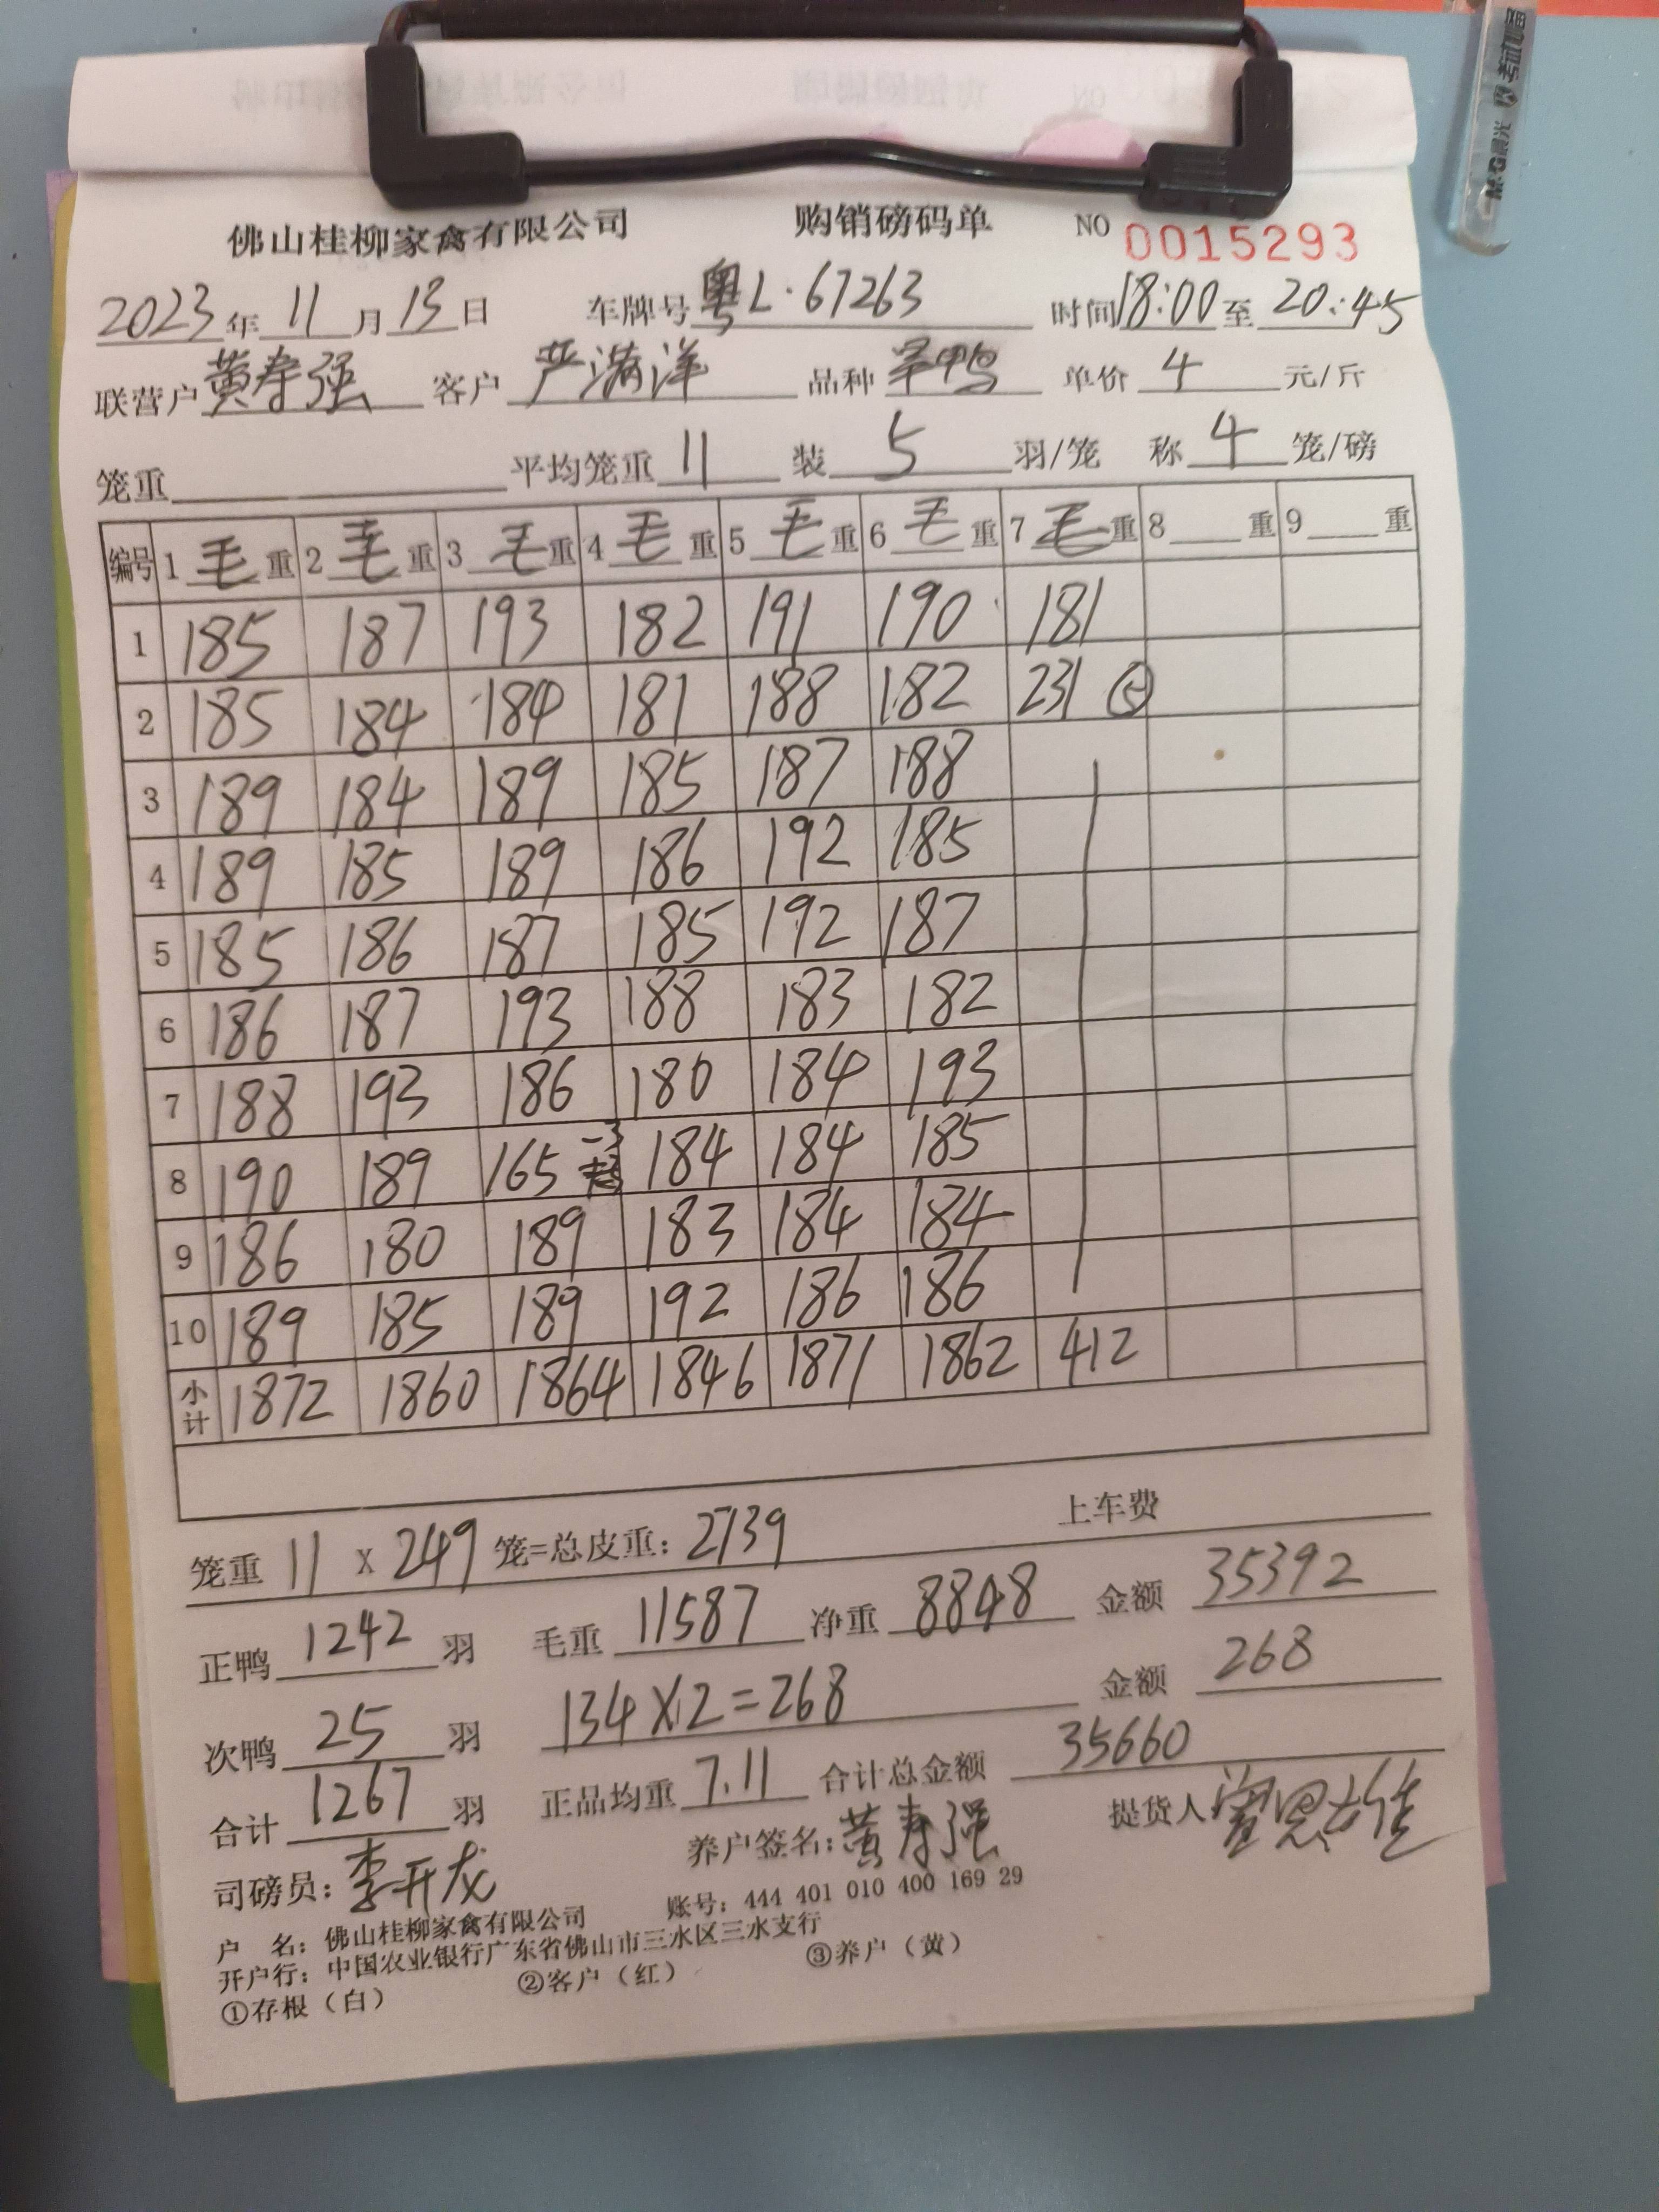 佛山桂柳家禽有限公司 购销磅码单 NO 0015293
2023年11月13日 车牌号粤L·67263 时间18:00至20:45
联营户黄寿强 客户严满洋 品种 单价4元/斤
笼重 平均笼重11 装5羽/笼 称4笼/磅
编号 1毛重 2毛重 3毛重 4毛重 5毛重 6毛重 7毛重 8重 9重
1 185 187 193 182 191 190 181
2 185 184 184 181 188 182 231 ⑤
3 189 184 189 185 187 188
4 189 185 189 186 192 185
5 185 186 187 185 192 187
6 186 187 193 188 183 182
7 188 193 186 180 184 193
8 190 189 165 -3 184 184 185
9 186 180 189 183 184 184
10 189 185 189 192 186 186
小计 1872 1860 1864 1846 1871 1862 412
笼重11 x 249笼=总皮重：2739 上车费
正鸭1242羽 毛重11587 净重8848 金额35392
次鸭25羽 134×2=268 金额268
合计1267羽 正品均重7.11 合计总金额35660
司磅员：李开龙 养户签名：黄寿强 提货人
户 名：佛山桂柳家禽有限公司 账号：444 401 010 400 169 29
开户行：中国农业银行广东省佛山市三水区三水支行
①存根（白） ②客户（红） ③养户（黄）
M&G晨光